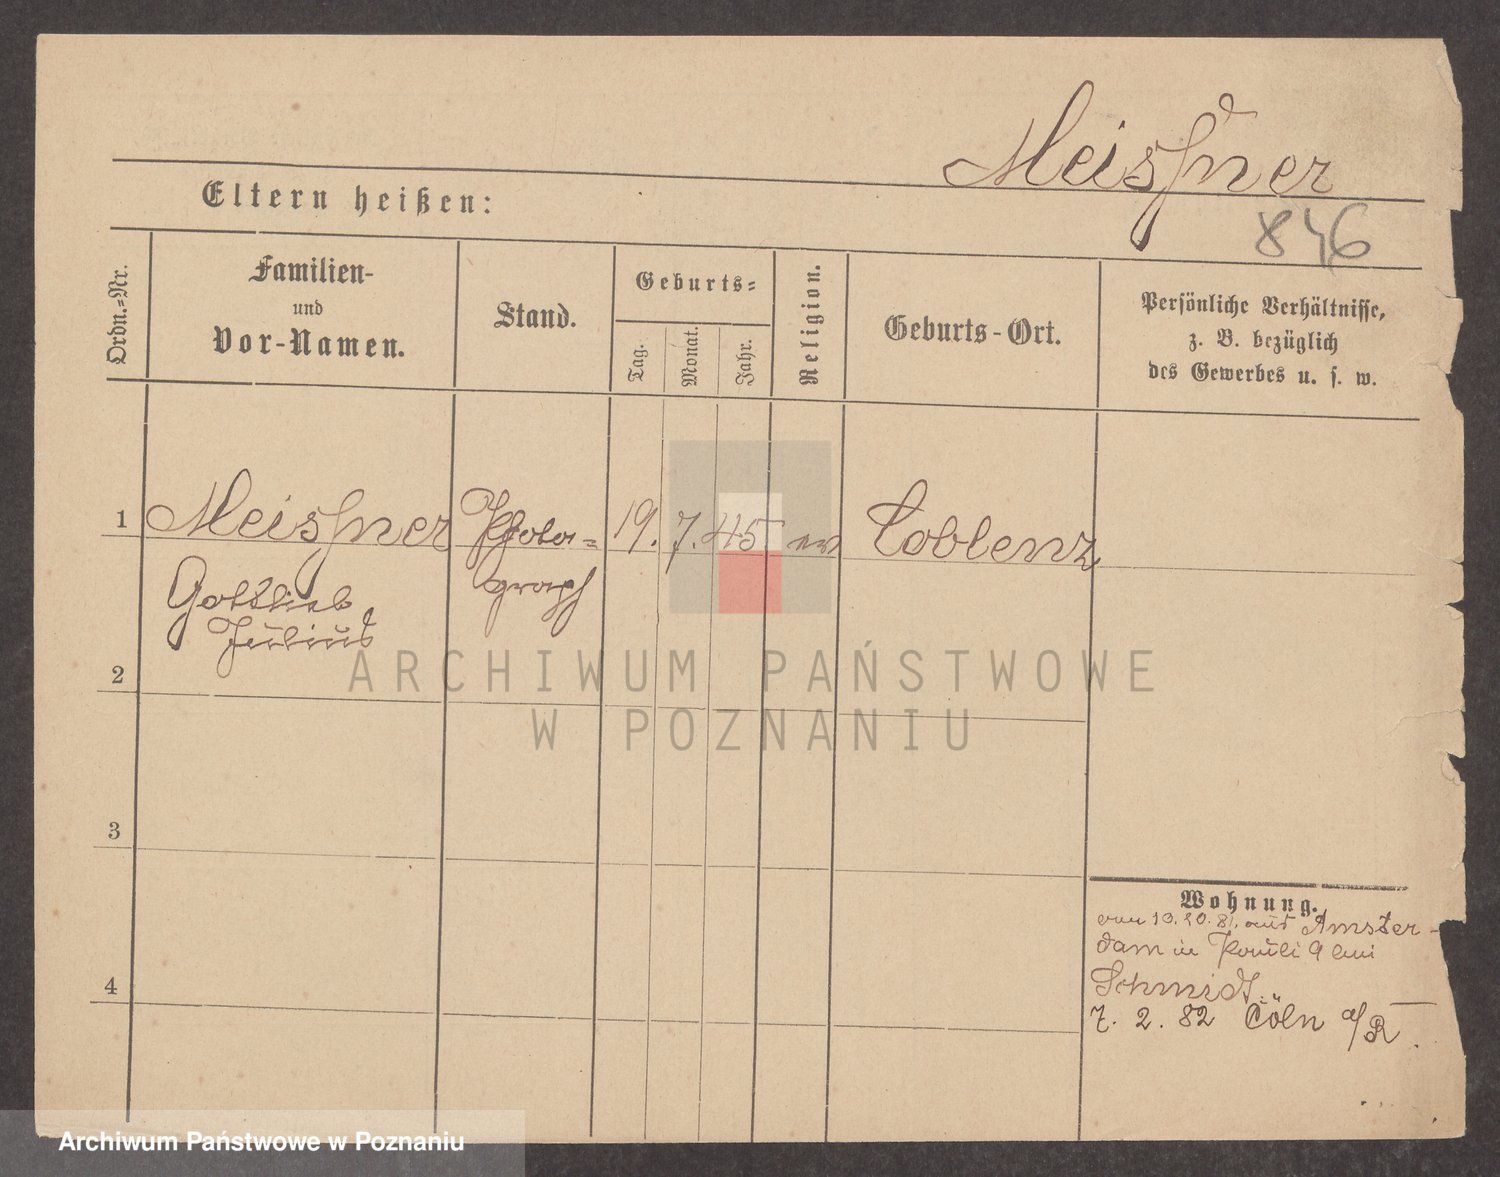 Meisſner
Eltern heißen:
846
Ordn.=Nr.
Familien-
und
Vor-Namen.
Stand.
Geburts=
Tag.
Monat.
Jahr.
Religion.
Geburts-Ort.
Persönliche Verhältnisse,
z. B. bezüglich
des Gewerbes u. s. w.
1
Meisſner
Photo=
19. 7. 45
ev
Coblenz
graph
Gottlieb
Julius
2
ARCHIWUM PAŃSTWOWE
W POZNANIU
3
Wohnung.
10. 81. aus Amster-
dam in Pauli 9 bei
Schmidt.
4
7. 2. 82 Cöln a/R.
Archiwum Państwowe w Poznaniu